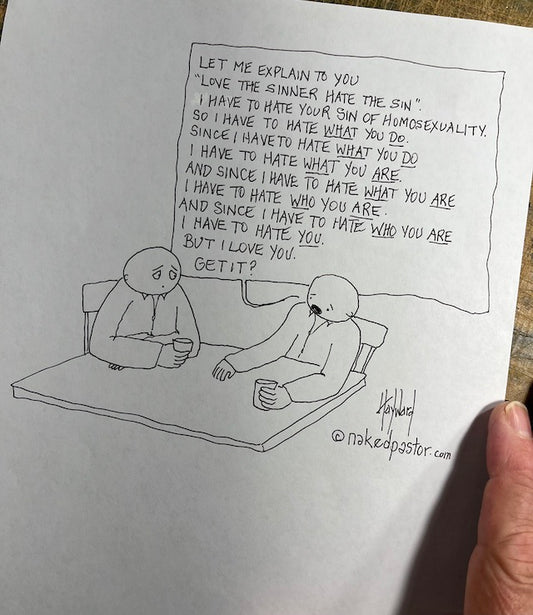 LET ME EXPLAIN TO YOU
"LOVE THE SINNER HATE THE SIN".
I HAVE TO HATE YOUR SIN OF HOMOSEXUALITY.
SO I HAVE TO HATE WHAT YOU DO.
SINCE I HAVE TO HATE WHAT YOU DO
I HAVE TO HATE WHAT YOU ARE.
AND SINCE I HAVE TO HATE WHAT YOU ARE
I HAVE TO HATE WHO YOU ARE.
AND SINCE I HAVE TO HATE WHO YOU ARE
I HAVE TO HATE YOU.
BUT I LOVE YOU.
GET IT?
Hayward
© nakedpastor.com